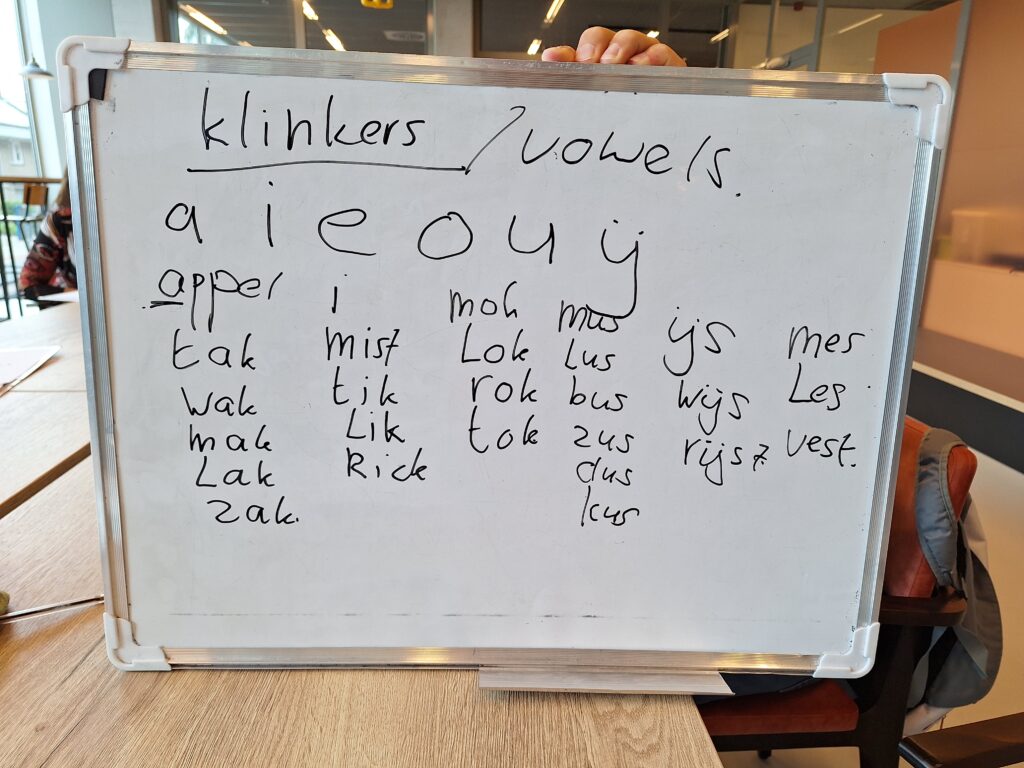 klinkers / vowels.
a i e o u ij
apper
tak
wak
mak
Lak
zak.
i
mist
tik
Lik
Rick
Lok
rok
tok
mus
lus
bus
zus
dus
kus
ijs
wijs
rijst
mes
Les
vest.